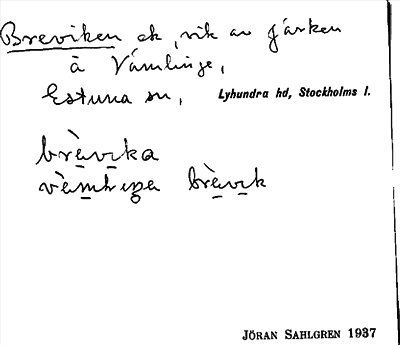 Breviken ek, vik av Järken
å Vämlinge,
Estuna sn, Lyhundra hd, Stockholms l.
brèvika
vèmlinga brèvik
JÖRAN SAHLGREN 1937